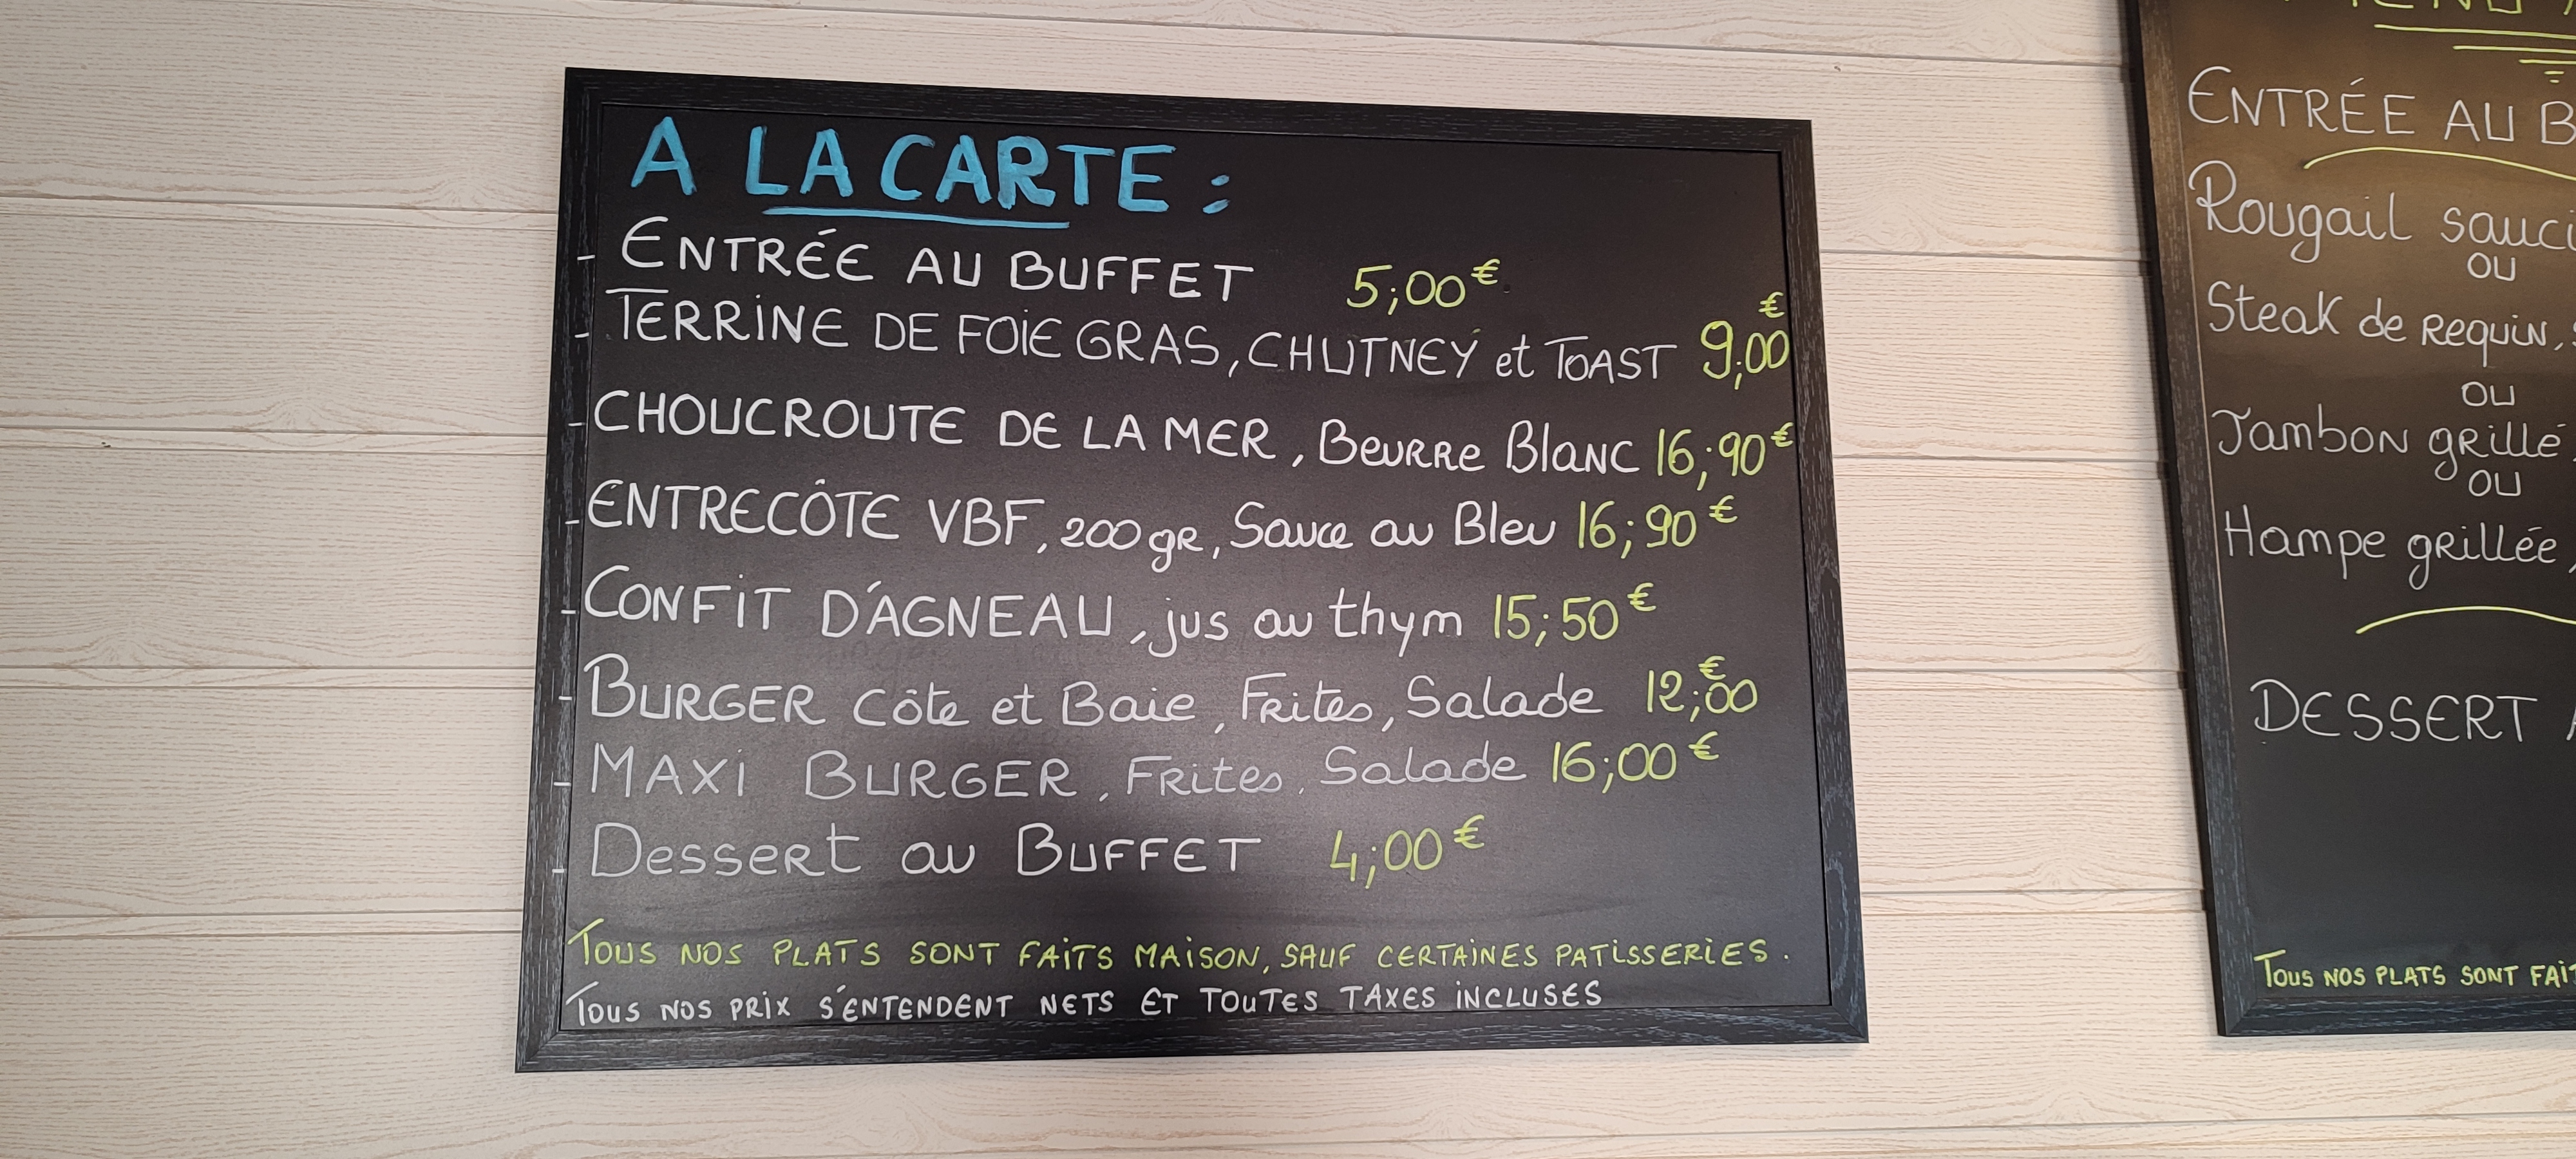 A LA CARTE :
- ENTRÉE AU BUFFET 5,00€
- TERRINE DE FOIE GRAS, CHUTNEY et TOAST 9,00€
- CHOUCROUTE DE LA MER, Beurre Blanc 16,90€
- ENTRECÔTE VBF, 200gr, Sauce au Bleu 16,90€
- CONFIT D'AGNEAU, jus au thym 15,50€
- BURGER Côte et Baie, Frites, Salade 12,00€
- MAXI BURGER, Frites, Salade 16,00€
- Dessert au BUFFET 4,00€
TOUS NOS PLATS SONT FAITS MAISON, SAUF CERTAINES PATISSERIES.
TOUS NOS PRIX S'ENTENDENT NETS ET TOUTES TAXES INCLUSES
ENTRÉE AU
Rougail
OU
Steak de Requin,
OU
Jambon grillé
OU
Hampe grillée,
DESSERT
TOUS NOS PLATS SONT